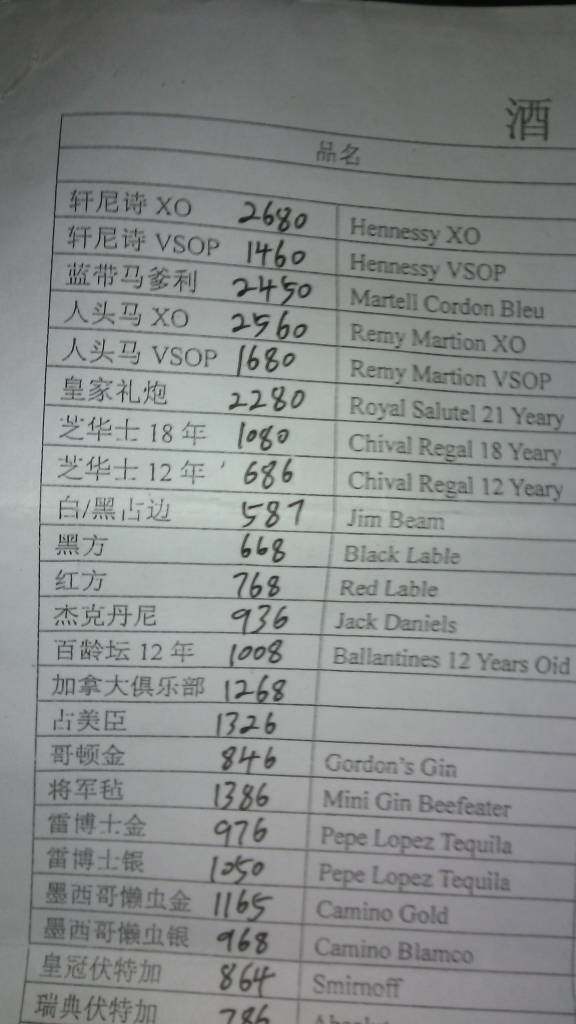 酒
品名
轩尼诗 XO 2680 Hennessy XO
轩尼诗 VSOP 1460 Hennessy VSOP
蓝带马爹利 2450 Martell Cordon Bleu
人头马 XO 2560 Remy Martion XO
人头马 VSOP 1680 Remy Martion VSOP
皇家礼炮 2280 Royal Salutel 21 Yeary
芝华士 18 年 1080 Chival Regal 18 Yeary
芝华士 12 年 686 Chival Regal 12 Yeary
白/黑占边 587 Jim Beam
黑方 668 Black Lable
红方 768 Red Lable
杰克丹尼 936 Jack Daniels
百龄坛 12 年 1008 Ballantines 12 Years Oid
加拿大俱乐部 1268
占美臣 1326
哥顿金 846 Gordon's Gin
将军毡 1386 Mini Gin Beefeater
雷博士金 976 Pepe Lopez Tequila
雷博士银 1050 Pepe Lopez Tequila
墨西哥懒虫金 1165 Camino Gold
墨西哥懒虫银 968 Camino Blamco
皇冠伏特加 864 Smirnoff
瑞典伏特加 786